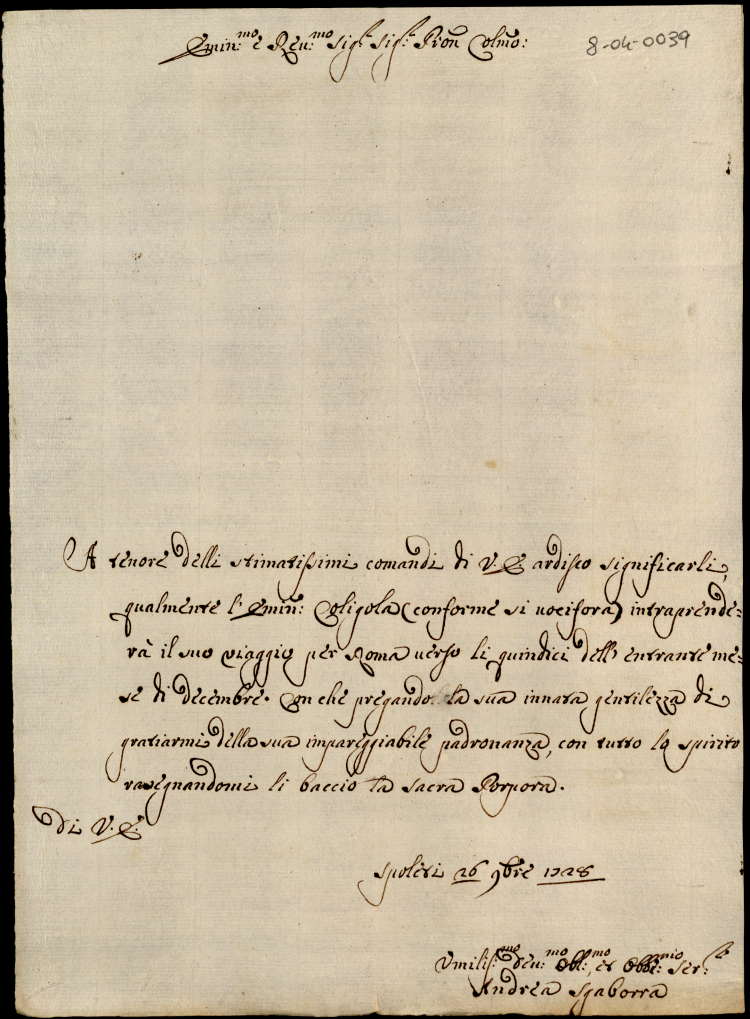 Emin:mo e Reu:mo Sigr Sigr Pron Colmo:
8-04-0039
A tenore delli stimatissimi comandi di V. E. ardisco significarli,
qualmente l'Emin: Coligola (conforme si uocifora) intraprende-
rà il suo viaggio per Roma uerso li quindici dell'entrante me-
se di decembre. Con che pregando la sua innata gentilezza di
gratiarmi della sua impareggiabile padronanza, con tutto lo spirito
rasegnandomi li baccio la sacra Porpora.
Di V. E.
Spoleti 26 9bre 1728
Umilis:mo deu:mo obl:mo, et obb:mio ser:re
Andrea Sgaborra